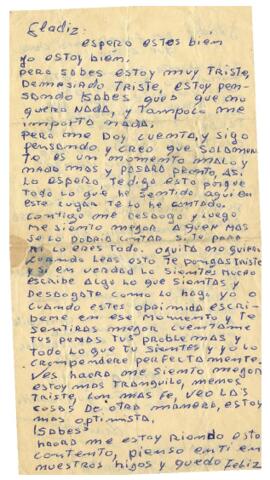 Eladiz:
espero estes bien
yo estoy bien.
pero sabes estoy muy triste,
demasiado triste, estoy pen-
sando sabes que que no
quero nada, y tampoco me
importa nada;
pero me doy cuenta, y sigo
pensando y creo que solamen
te es un momento malo y
nada mas y pasara pronto, asi
lo espero, te digo esto porque
todo lo que he sentido aqui en
este lugar te lo he contado.
contigo me desaogo y luego
me siento megor. aquien mas
se lo podria contar si te para
mi lo eres todo. oquita no quiero
cuando leas esto te pongas triste
y si en verdad lo sientes mucho
escribe algo lo que sientas y
desaogate como lo hago yo
cuando este oprimida escri-
beme en ese momento y te
sentiras megor cuentame
tus penas tus problemas y
todo lo que tu sientes y yo lo
comprendere perfectamente.
ves haora me siento megor
estoy mas tranquilo, menos
triste, con mas fe, veo las
cosas de otra manera, estoy
mas optimista.
sabes
haora me estoy riendo esto
contento, pienso en ti en
nuestros higos y quedo feliz